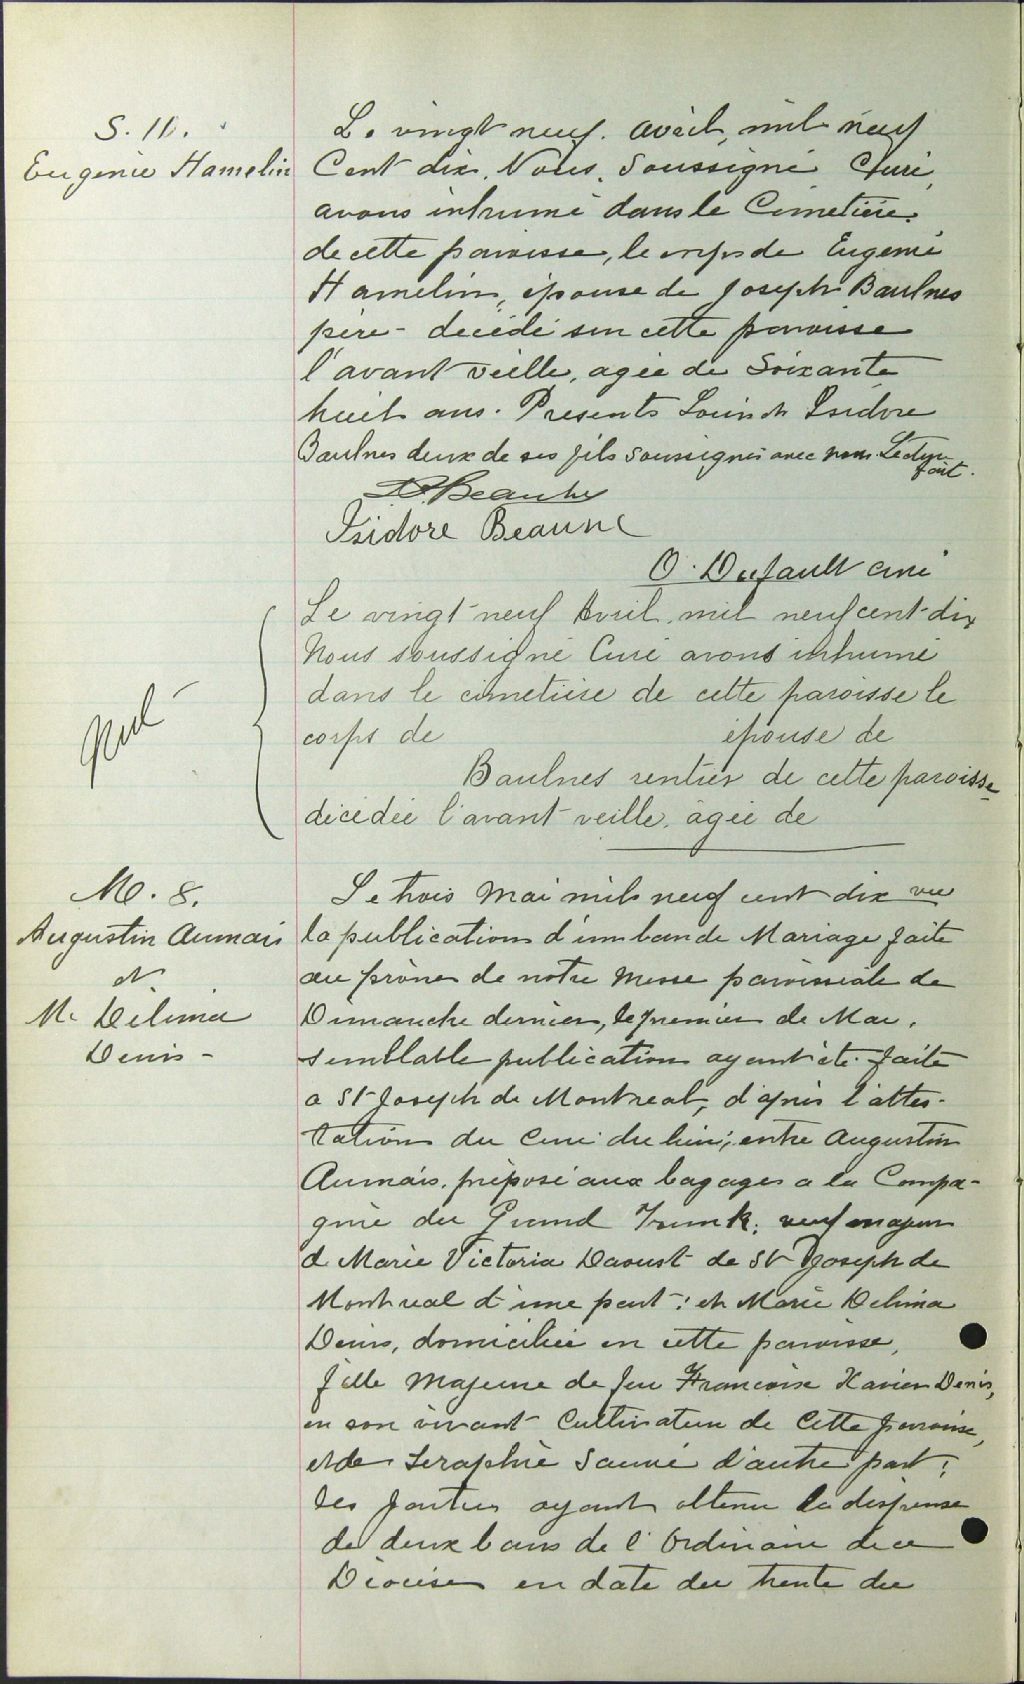 S. 11.
Eugenie Hamelin
Le vingt neuf. avril, mil neuf
Cent dix, Nous, soussigné Curé,
avons inhumé dans le Cimetière.
de cette paroisse, le corps de Eugenie
Hamelin, épouse de Joseph Baulnes
père - decédé en cette paroisse
l'avant veille, agée de Soixante
huit ans. Presents Louis et Isidore
Baulnes deux de ses fils soussignés avec nous Lecture
fait.
Beaulne
Isidore Beaune
O. Dufault curé
nul
Le vingt-neuf Avril, mil neuf cent-dix
Nous soussigné Curé avons inhumé
dans le cimetière de cette paroisse le
corps de épouse de
Baulnes rentier de cette paroisse
décédée l'avant veille, âgée de
M. 8.
Augustin Aumais
et
M. Délima
Denis -
Le trois Mai mil neuf cent dix vu
la publication d'un ban de Mariage faite
au prône de notre Messe paroissiale de
Dimanche dernier, le premier de Mai,
semblable publication ayant été faite
a St Joseph de Montreal, d'après l'attes-
tation du Curé du lieu; entre Augustin
Aumais, préposé aux bagages a la Compa-
gnie du Grand Trunk; veuf majeur
d Marie Victoria Daoust de St Joseph de
Montreal d'une part: et Marie Delima
Denis, domiciliée en cette paroisse,
fille majeure de feu Francoise Xavier Denis,
en son vivant Cultivateur de Cette paroisse,
et de Seraphie Sauvé d'autre part;
les parties ayant obtenu la dispense
de deux bans de l'Ordinaire de ce
Diocèse en date du trente du